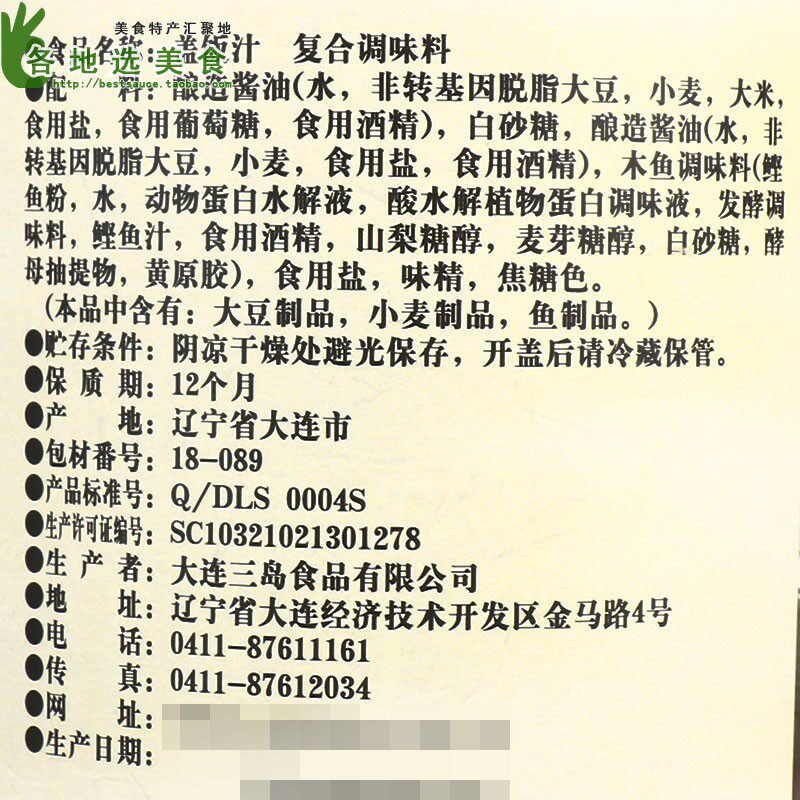 美食特产汇聚地
各地选美食
http://bestsauce.taobao.com
●食品名称：盖饭汁 复合调味料
●配 料：酿造酱油(水，非转基因脱脂大豆，小麦，大米，
食用盐，食用葡萄糖，食用酒精)，白砂糖，酿造酱油(水，非
转基因脱脂大豆，小麦，食用盐，食用酒精)，木鱼调味料(鲣
鱼粉，水，动物蛋白水解液，酸水解植物蛋白调味液，发酵调
味料，鲣鱼汁，食用酒精，山梨糖醇，麦芽糖醇，白砂糖，酵
母抽提物，黄原胶)，食用盐，味精，焦糖色。
(本品中含有：大豆制品，小麦制品，鱼制品。)
●贮存条件：阴凉干燥处避光保存，开盖后请冷藏保管。
●保质期：12个月
●产 地：辽宁省大连市
●包材番号：18-089
●产品标准号：Q/DLS 0004S
●生产许可证编号：SC10321021301278
●生产者：大连三岛食品有限公司
●地 址：辽宁省大连经济技术开发区金马路4号
●电 话：0411-87611161
●传 真：0411-87612034
●网 址：
●生产日期：